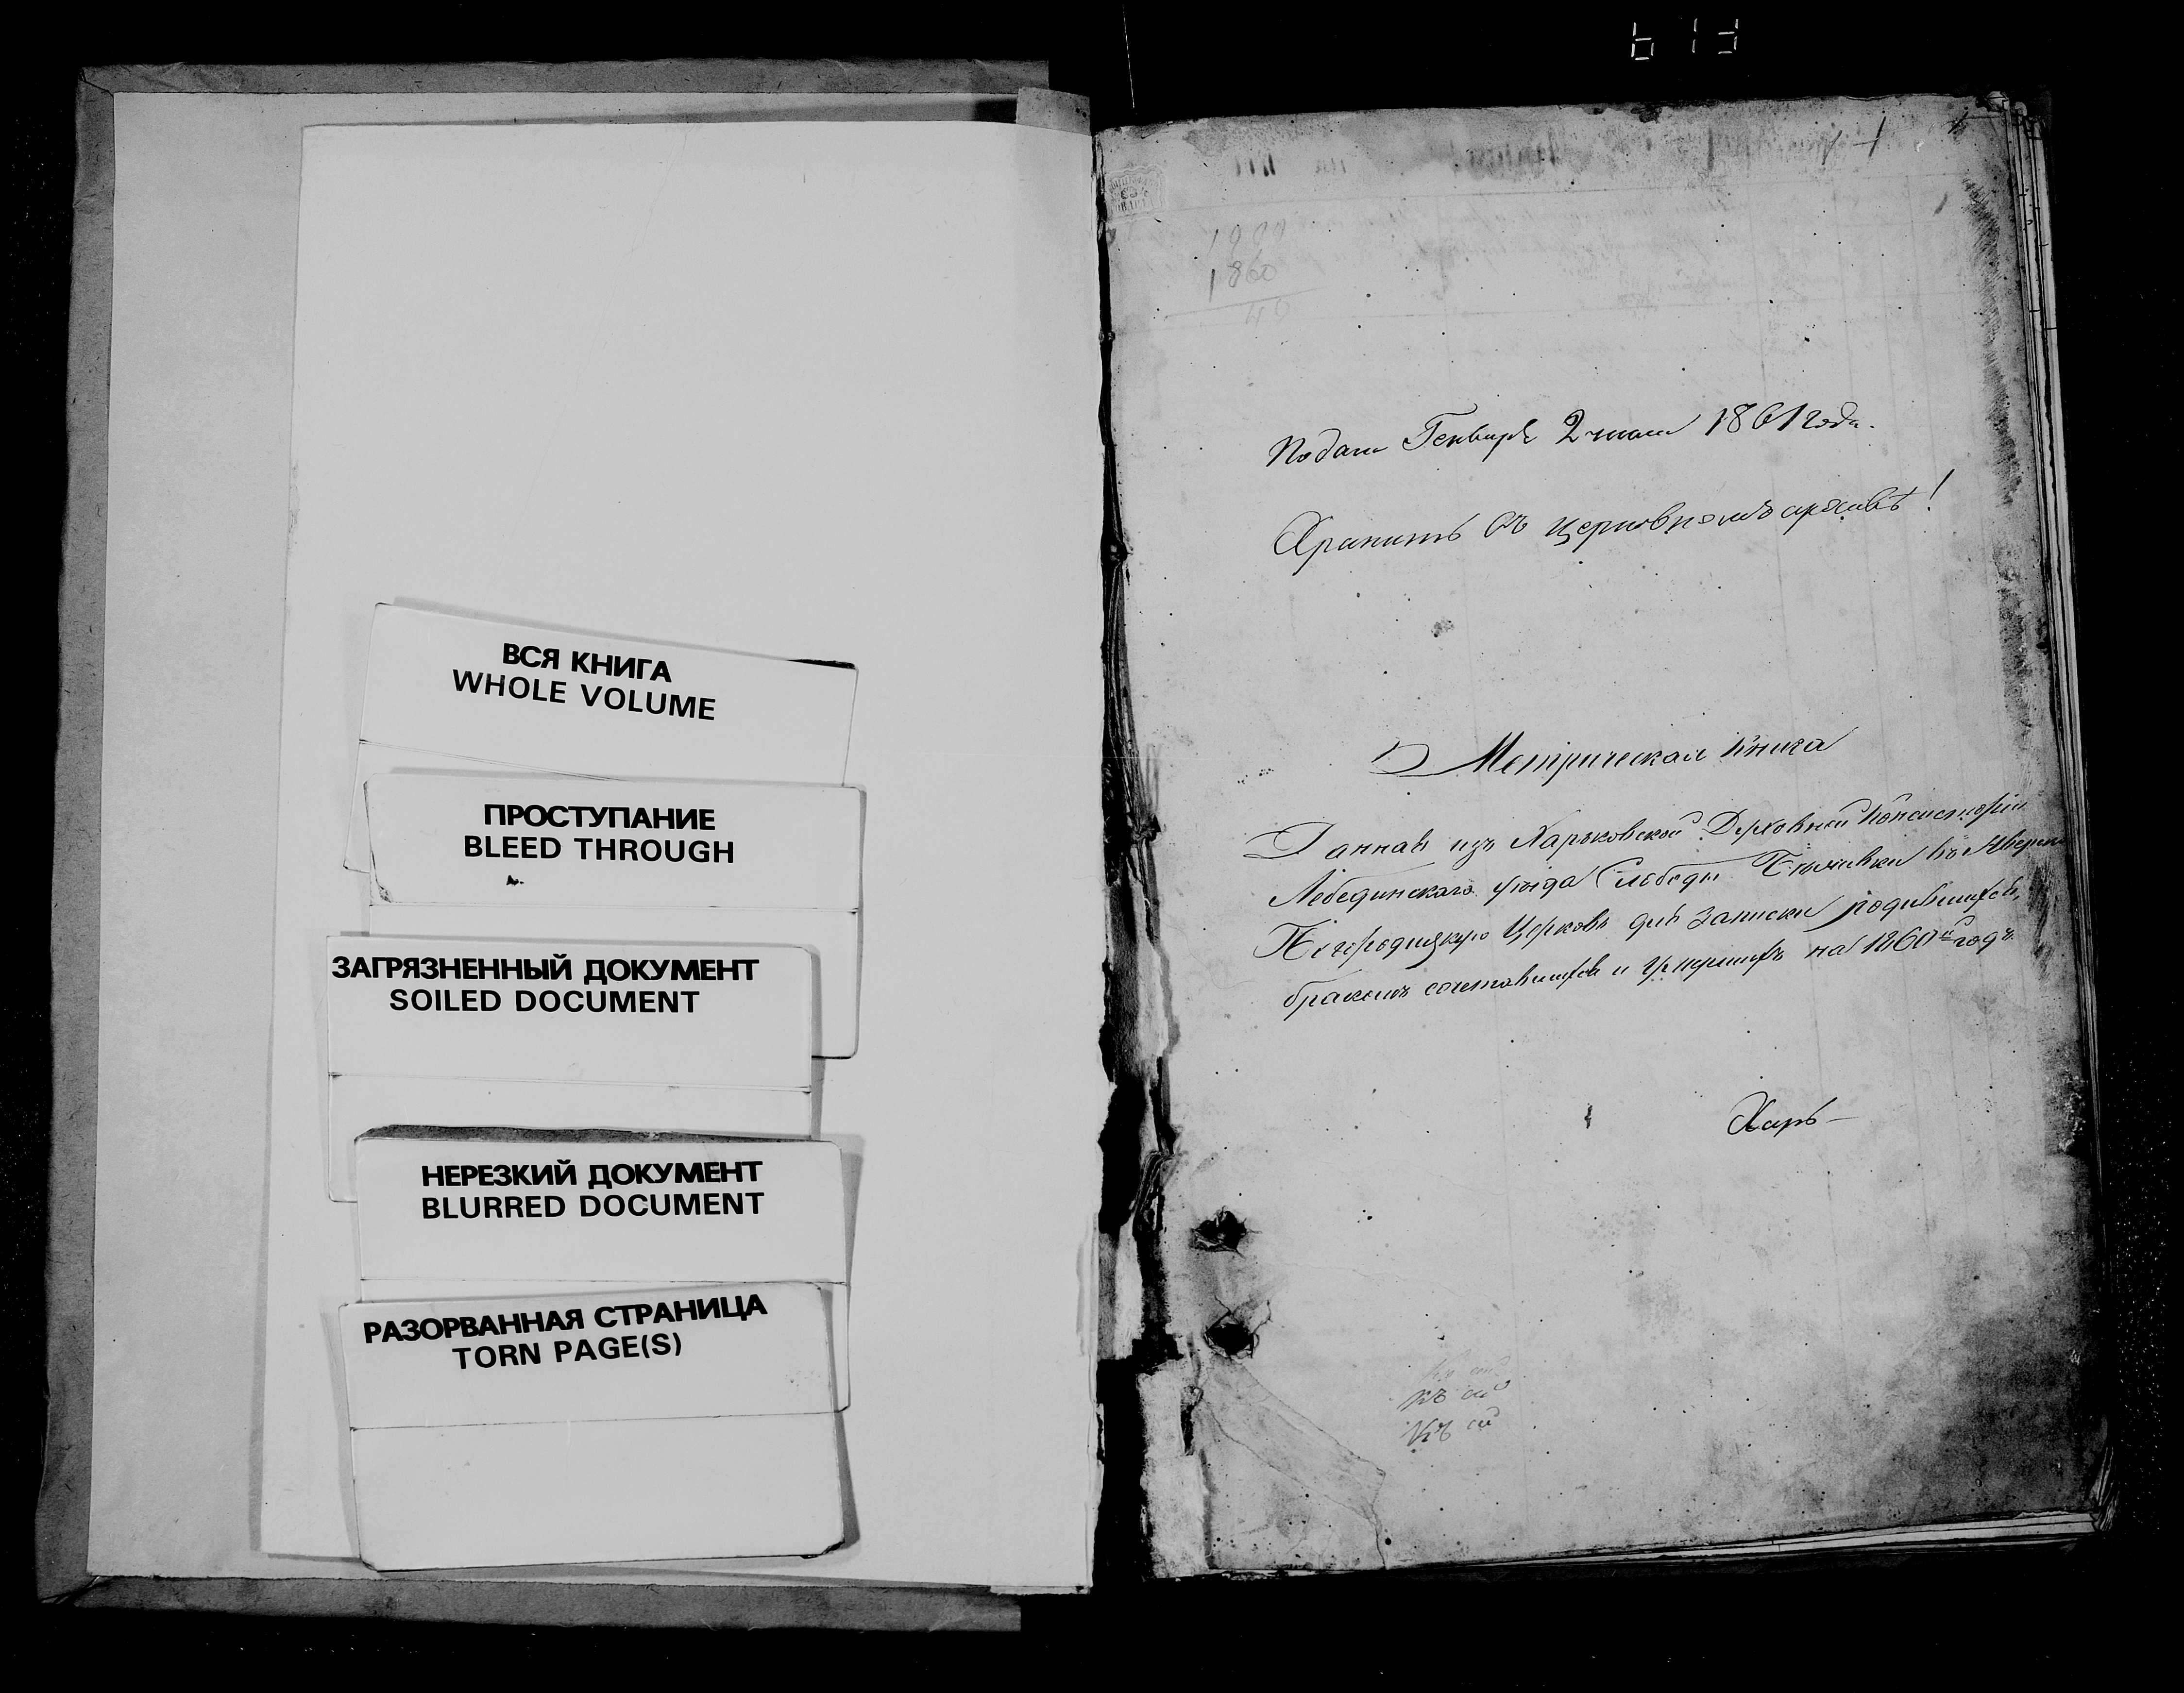 ВСЯ КНИГА
WHOLE VOLUME
ПРОСТУПАНИЕ
BLEED THROUGH
ЗАГРЯЗНЕННЫЙ ДОКУМЕНТ
SOILED DOCUMENT
НЕРЕЗКИЙ ДОКУМЕНТ
BLURRED DOCUMENT
РАЗОРВАННАЯ СТРАНИЦА
TORN PAGE(S)
1
1860
Генваря 2 1861 года.
Хранить въ церковномъ архивѣ!
Метрическая Книга
Данная изъ Харьковской Духовной Консисторіи
Лебединскаго уѣзда Слободы въ
Богородицкую Церковь для записки родившихся,
бракомъ сочетавшихся и умершихъ на 1860й годъ.
Харь-
Къ сей
Къ сей